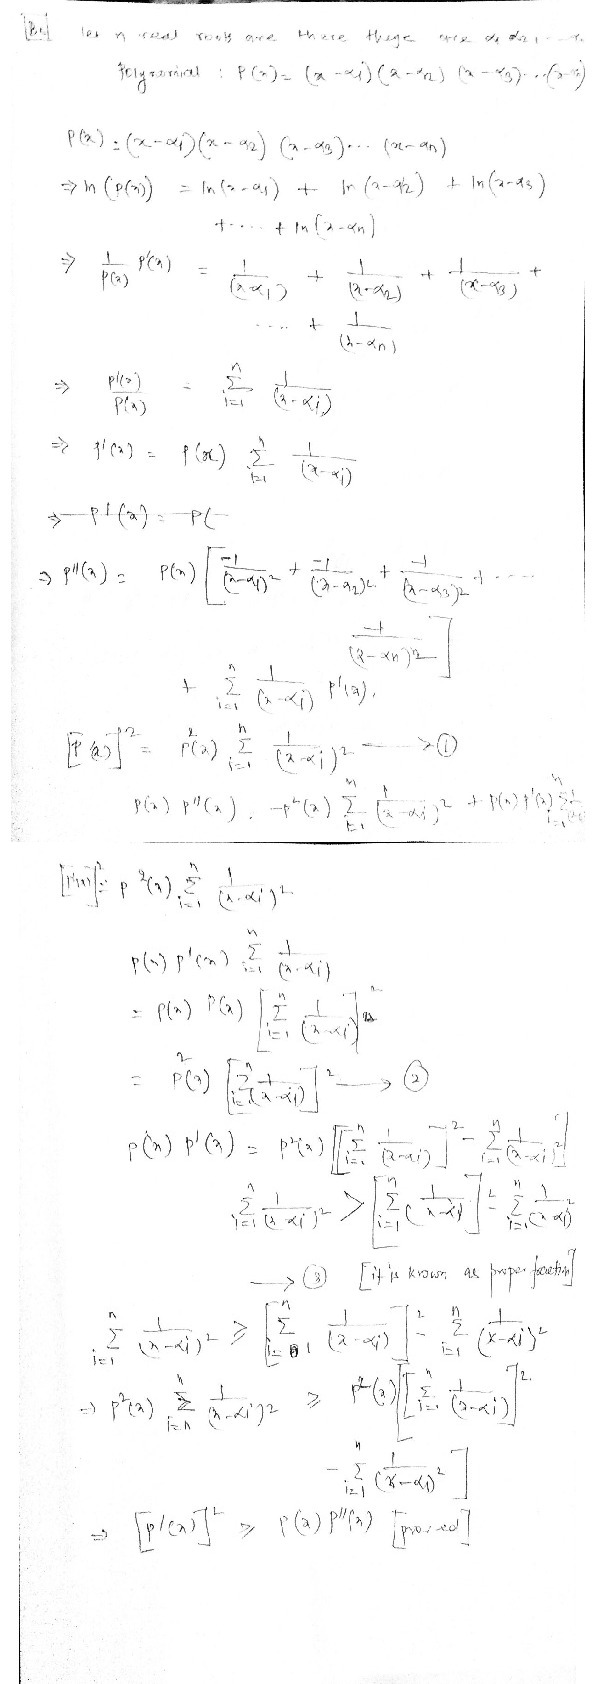 let n real roots are there these are α1, α2, ...
Polynomial : P(x) = (x-α1)(x-α2)(x-α3)...(x-
P(x) = (x-α1)(x-α2)(x-α3)... (x-αn)
⇒ ln (P(x)) = ln(x-α1) + ln(x-α2) + ln(x-α3)
+ .... + ln(x-αn)
⇒ 1/P(x) P'(x) = 1/(x-α1) + 1/(x-α2) + 1/(x-α3) +
.... + 1/(x-αn)
⇒ P'(x)/P(x) = Σ_{i=1}^{n} 1/(x-αi)
⇒ P'(x) = P(x) Σ_{i=1}^{n} 1/(x-αi)
⇒ P'(x) = P(
⇒ P''(x) = P(x) [ -1/(x-α1)² + -1/(x-α2)² + -1/(x-α3)² + ....
-1/(x-αn)² ]
+ Σ_{i=1}^{n} 1/(x-αi) P'(x).
[P'(x)]² = P²(x) Σ_{i=1}^{n} 1/(x-αi)² → ①
P(x) P''(x) . -P²(x) Σ_{i=1}^{n} 1/(x-αi)² + P(x) P'(x) Σ_{i=1}^{n} 1/
[P'(x)]² = P²(x) Σ_{i=1}^{n} 1/(x-αi)²
P(x) P'(x) Σ_{i=1}^{n} 1/(x-αi)
= P(x) P(x) [ Σ_{i=1}^{n} 1/(x-αi) ]²
= P²(x) [ Σ_{i=1}^{n} 1/(x-αi) ]² → ②
P(x) P'(x) = P²(x) [ [ Σ_{i=1}^{n} 1/(x-αi) ]² - Σ_{i=1}^{n} 1/(x-αi)² ]
Σ_{i=1}^{n} 1/(x-αi)² > [ Σ_{i=1}^{n} 1/(x-αi) ]² - Σ_{i=1}^{n} 1/(x-αi)²
→ ③ [it is known as proper fraction]
Σ_{i=1}^{n} 1/(x-αi)² ≥ [ Σ_{i=1}^{n} 1/(x-αi) ]² - Σ_{i=1}^{n} 1/(x-αi)²
⇒ P²(x) Σ_{i=n}^{n} 1/(x-αi)² ≥ P²(x) [ [ Σ_{i=1}^{n} 1/(x-αi) ]²
- Σ_{i=1}^{n} 1/(x-αi)² ]
⇒ [P'(x)]² ≥ P(x) P''(x) [proved]